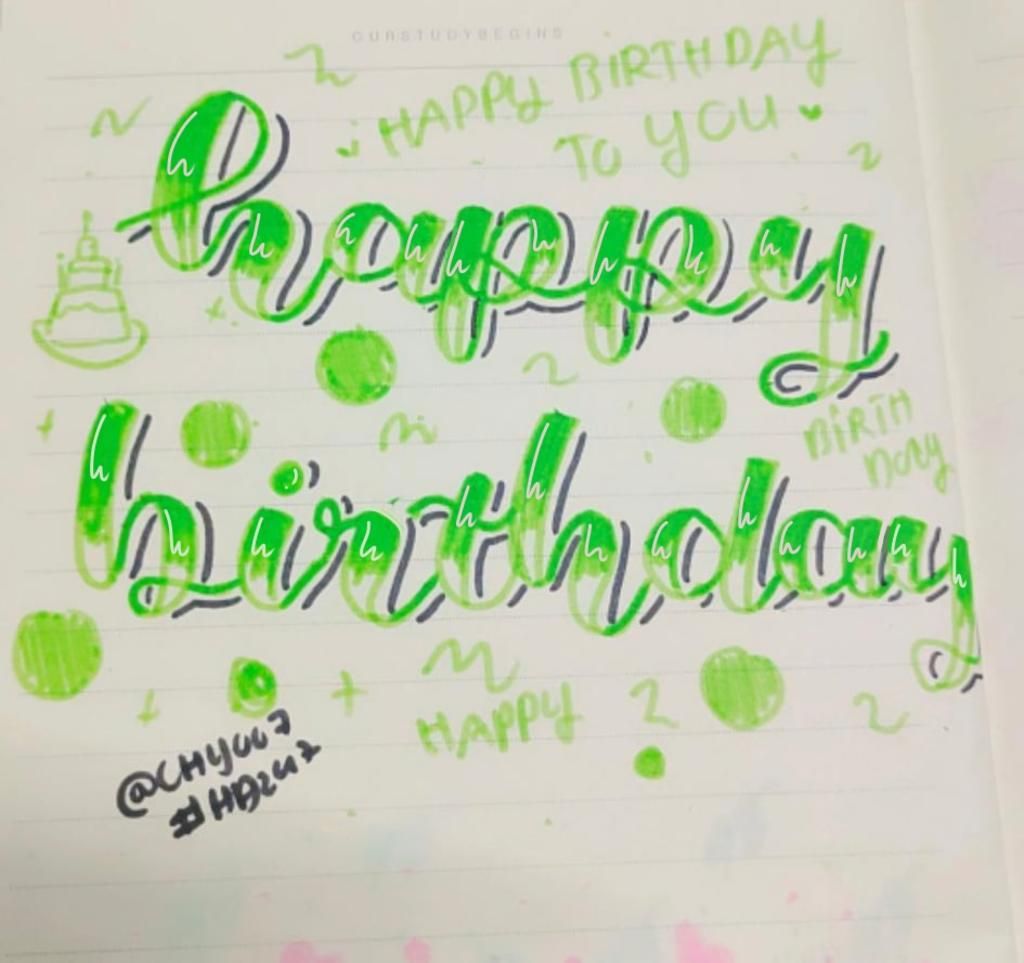 OURSTUDYBEGINS
HAPPY BIRTHDAY
TO YOU
happy
BIRTH
DAY
birthday
HAPPY
@CHY007